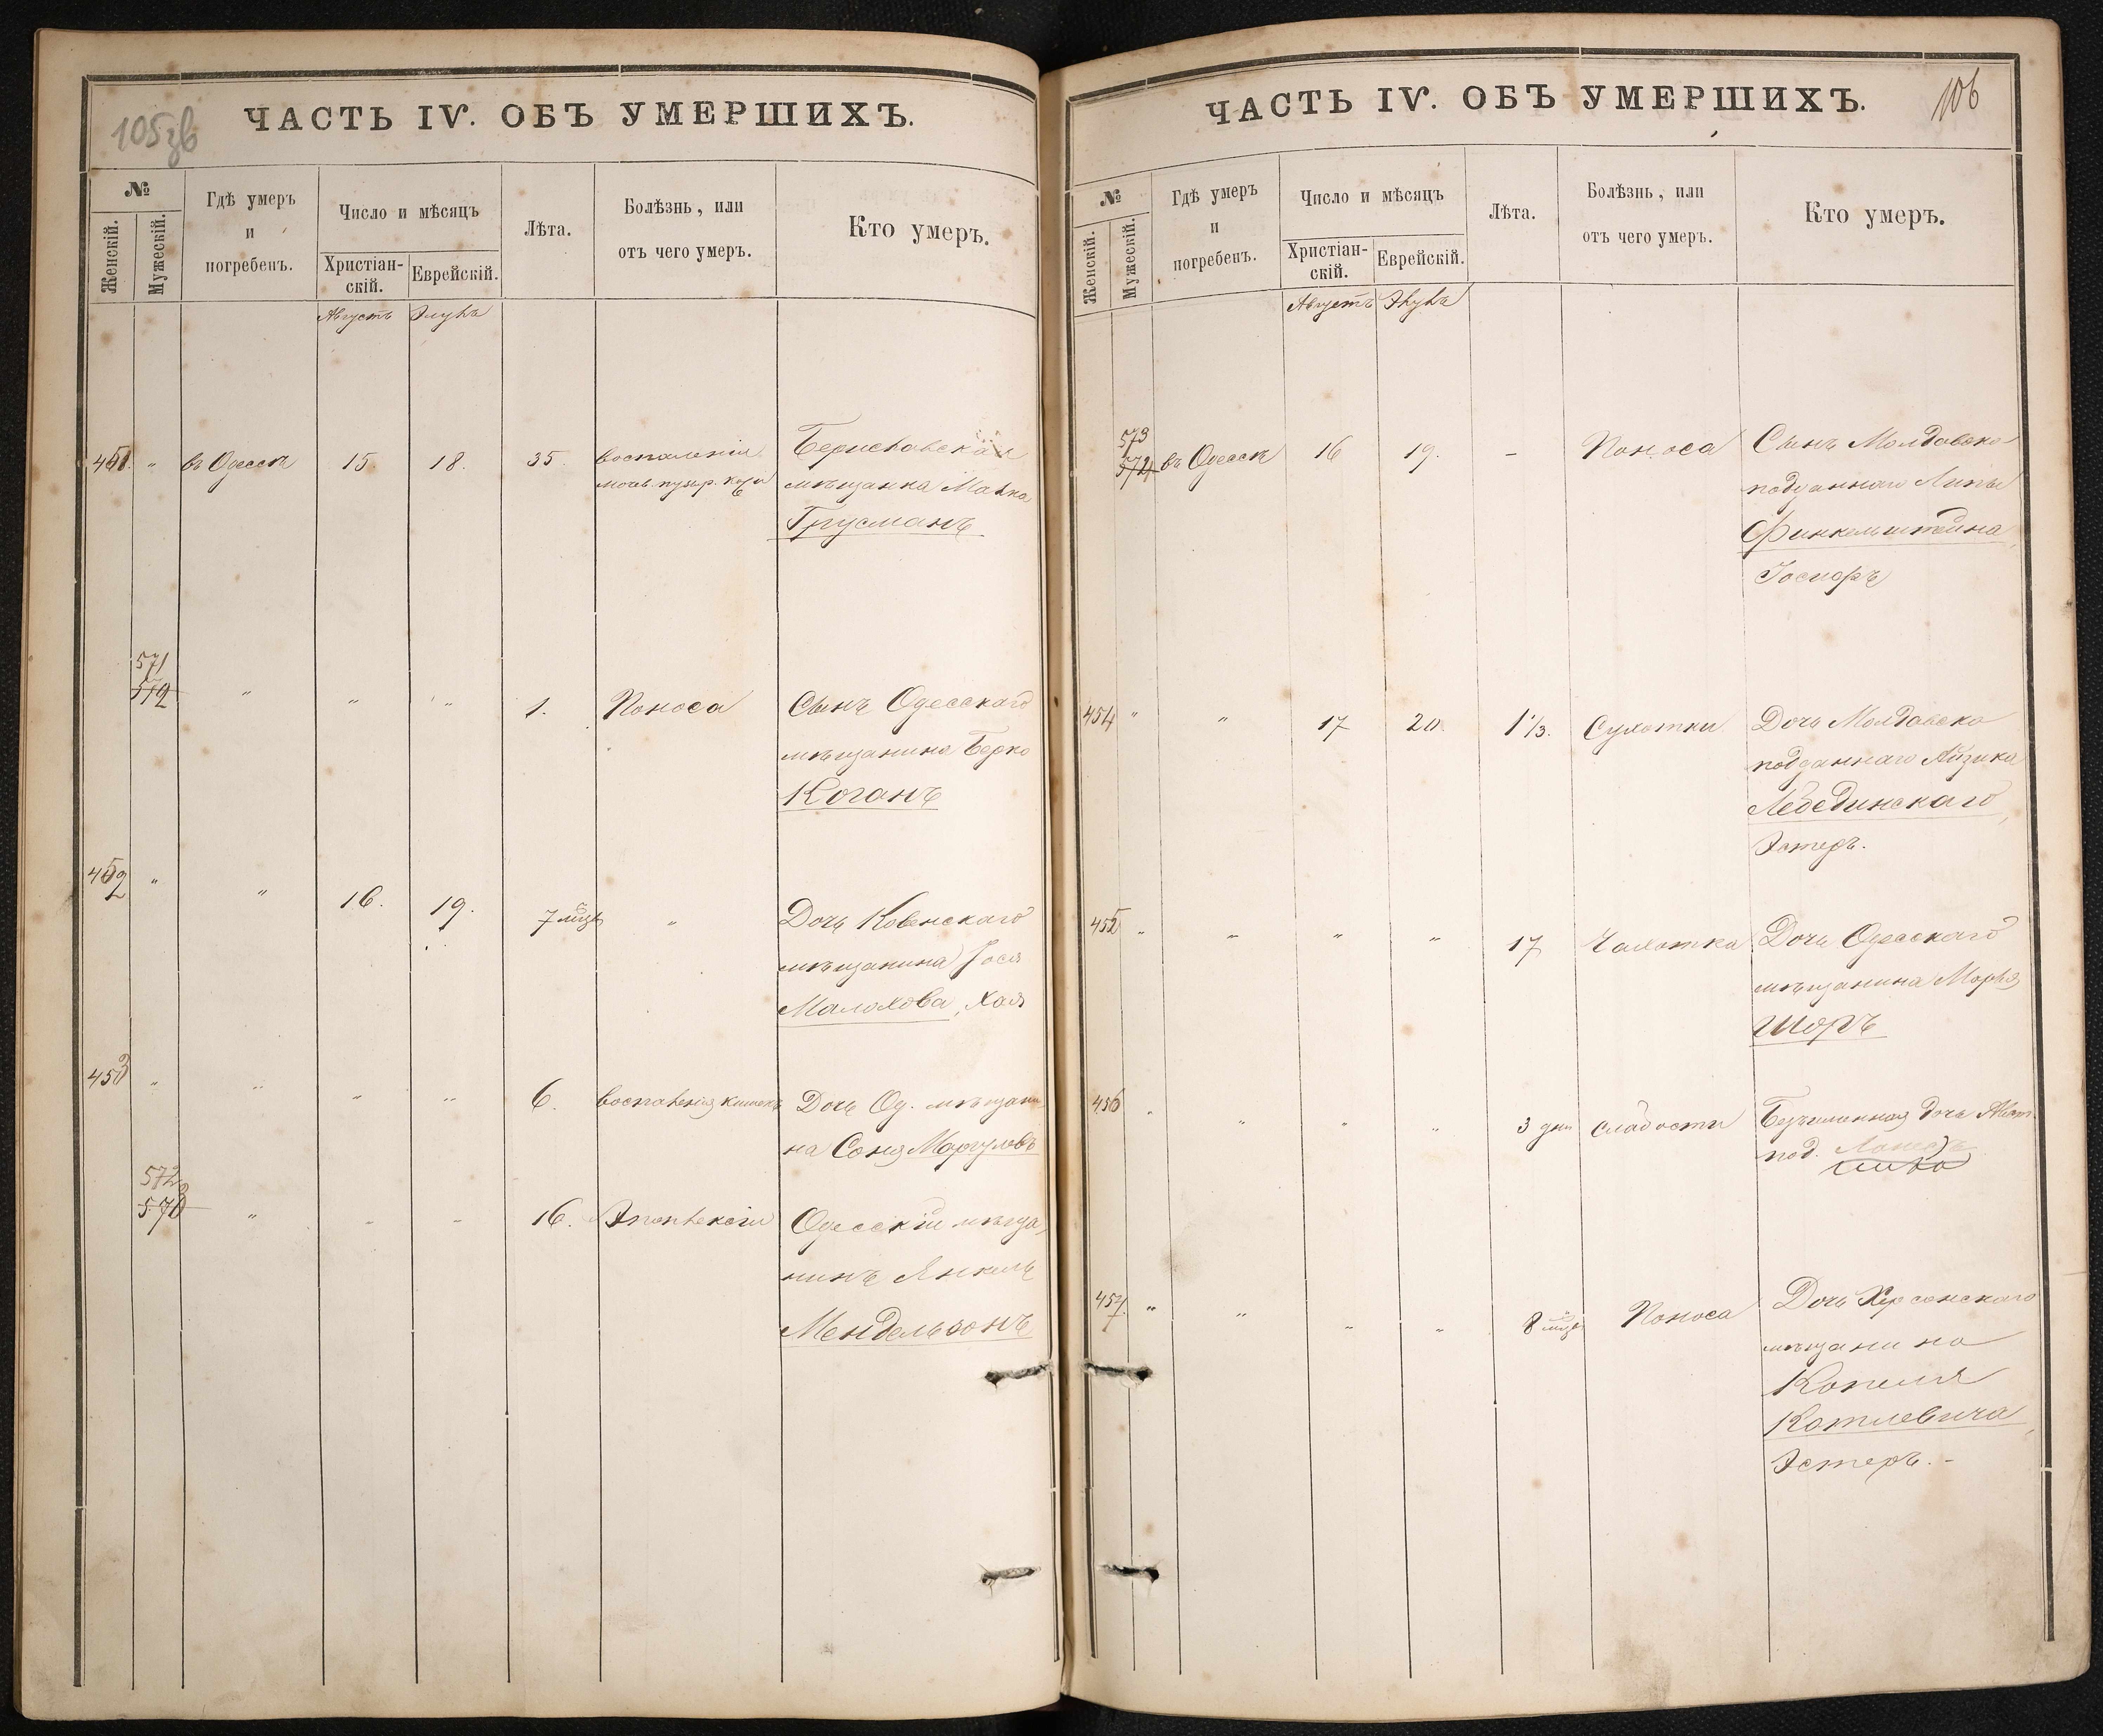 105зв
ЧАСТЬ IV. ОБЪ УМЕРШИХЪ.
№
Женскій.
Мужескій.
Гдѣ умеръ
и
погребенъ.
Число и мѣсяцъ
Христіан-
скій.
Еврейскій.
Лѣта.
Болѣзнь, или
отъ чего умеръ.
Кто умеръ.
Августъ Элулъ
451. " въ Одессѣ 15 18. 35. воспаленія Бериславская
моч. пузыр. мѣщанка Малка
Грусманъ
571
572 " " " 1. Поноса Сынъ Одесскаго
мѣщанина Берко
Коганъ
452 " " 16. 19. 7 мѣц " Дочь Ковенскаго
мѣщанина Іося
Малахова, Хая
453 " " " " 6. воспаленія кишекъ Дочь Од. мѣщани-
на Соня Маргуловъ
572
573 " - - 16. Эпилексіи Одесскій мѣща-
нинъ Янкель
Мендельзонъ
ЧАСТЬ IV. ОБЪ УМЕРШИХЪ.
106
№
Женскій.
Мужескій.
Гдѣ умеръ
и
погребенъ.
Число и мѣсяцъ
Христіан-
скій.
Еврейскій.
Лѣта.
Болѣзнь, или
отъ чего умеръ.
Кто умеръ.
Августъ Элулъ
573
574 въ Одессѣ 16 19. - Поноса Сынъ Молдавско
подданнаго Липы
Финкельштейна,
Іосифъ
454 " " 17 20. 1 1/3. Сухотки Дочь Молдавско
подданнаго Айзика
Лебединскаго,
Эстеръ.
455 " " " " 17 Чахотка Дочь Одесскаго
мѣщанина Марья
Шоръ
456 " " " " 3 дни слабости Безъименная дочь Авст.
под.
457. " " " " 8 мѣц Поноса Дочь Херсонскаго
мѣщанина
Копеля
Котлевича,
Эстеръ. -